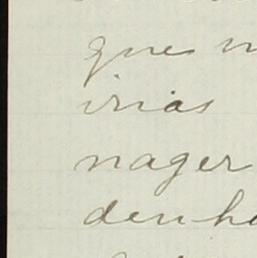 ques
irias
nager
den-he